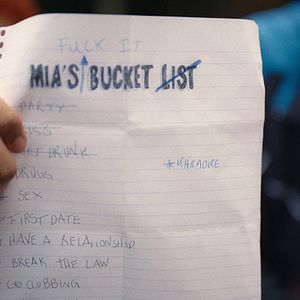 FUCK IT
MIA'S BUCKET LIST
PARTY
KISS
GET DRUNK
*KARAOKE
DRUGS
SEX
FIRST DATE
HAVE A RELATIONSHIP
BREAK THE LAW
GO CLUBBING